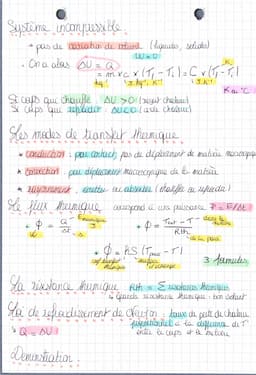 Système incompressible
• pas de variation de volume (liquides, solides)
W = 0
• On a alors ΔU = Q
= m × c × (Tf - Ti) = C × (Tf - Ti)
kg J.kg⁻¹.K⁻¹ J.K⁻¹ K
K ou °C
Si corps que chauffe : ΔU > 0 (reçoit chaleur)
Si corps que refroidit : ΔU < 0 (cède chaleur)
Les modes de transfert thermique
• conduction : par contact, pas de déplacement de matière macroscopique
• convection : par déplacement macroscopique de la matière
• rayonnement : émettre ou absorber (chauffe ou refroidie)
Le flux thermique correspond à une puissance P = E/Δt
• Φ = Q / Δt
W J s
• Φ = / Rth
• Φ = hS (Text - T)
3 formules
La résistance thermique Rth = Σ résistances thermiques
↳ grande résistance thermique : bon isolant
Loi de refroidissement de Newton : taux de perte de chaleur
proportionnel à la différence de T°
entre le corps et le milieu
• Q = ΔU
Démonstration